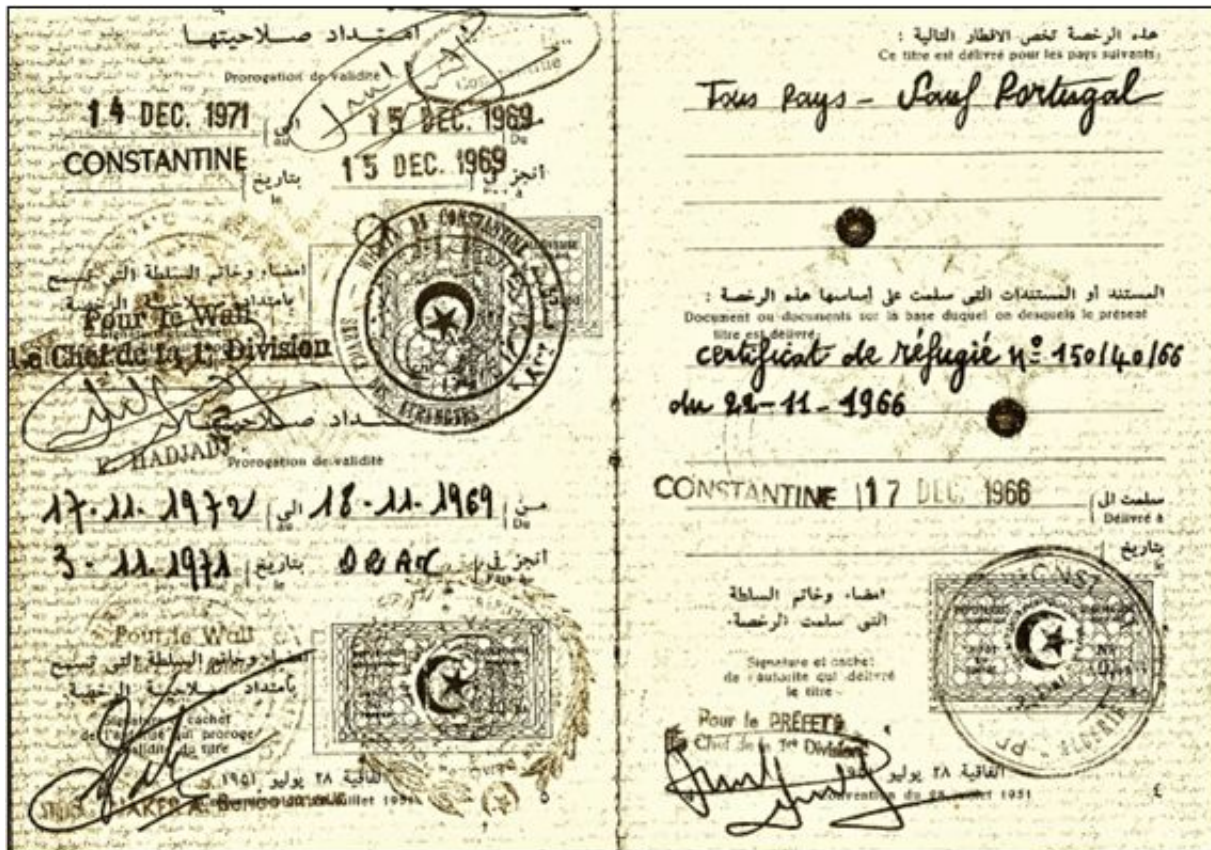 امتداد صلاحيتها
Prorogation de validité
14 DEC. 1971 الى au 15 DEC. 1969 من Du
CONSTANTINE بتاريخ le 15 DEC. 1969 أنجز في
امضاء وخاتم السلطة التي تسمح
بامتداد صلاحية الرخصة
Pour le Wali
Le Chef de la 1e Division
WILAYA DE CONSTANTINE
امتداد صلاحيتها
K. HADJADJ
Prorogation de validité
17-11-1972 الى au 18-11-1969 من Du
3-11-1971 بتاريخ le أنجز في
Pour le Wali
امضاء وخاتم السلطة التي تسمح
بامتداد صلاحية الرخصة
Signature et cachet
de l'autorité qui proroge
validité du titre
اتفاقية ٢٨ يوليو ١٩٥١
juillet 1951
٥
هذه الرخصة تخص الاقطار التالية :
Ce titre est délivré pour les pays suivants:
Tous Pays - Sauf Portugal
المستند أو المستندات التي سلمت على أساسها هذه الرخصة :
Document ou documents sur la base duquel on desquels le présent
titre est délivré:
certificat de réfugié nº 150/40/66
du 22-11-1966
CONSTANTINE 17 DEC. 1966 سلمت الى
Délivré à
بتاريخ
le
امضاء وخاتم السلطة
التي سلمت الرخصة.
Signature et cachet
de l'autorité qui délivre
le titre
Pour le PRÉFET
Le Chef de la 1re Division
ALGERIE
اتفاقية ٢٨ يوليو ١٩٥١
Convention du 28 juillet 1951
٤